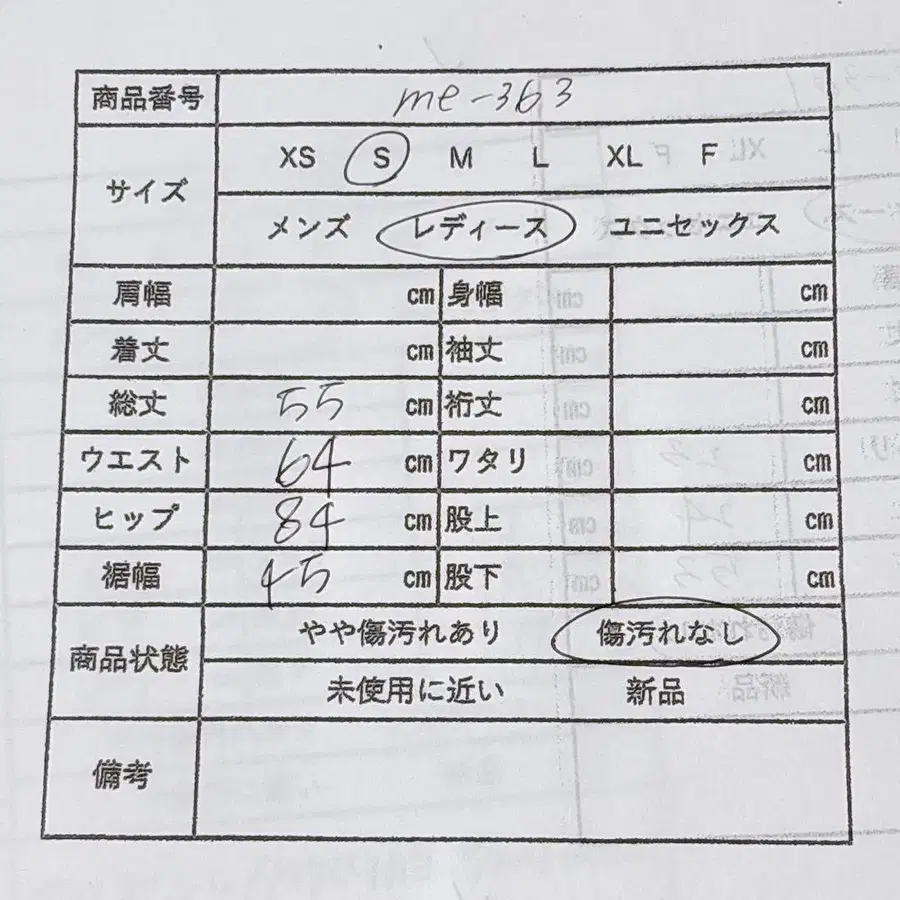 商品番号 me-363
サイズ XS S M L XL F
メンズ レディース ユニセックス
肩幅 cm 身幅 cm
着丈 cm 袖丈 cm
総丈 55 cm 裄丈 cm
ウエスト 64 cm ワタリ cm
ヒップ 84 cm 股上 cm
裾幅 45 cm 股下 cm
商品状態 やや傷汚れあり 傷汚れなし
未使用に近い 新品
備考